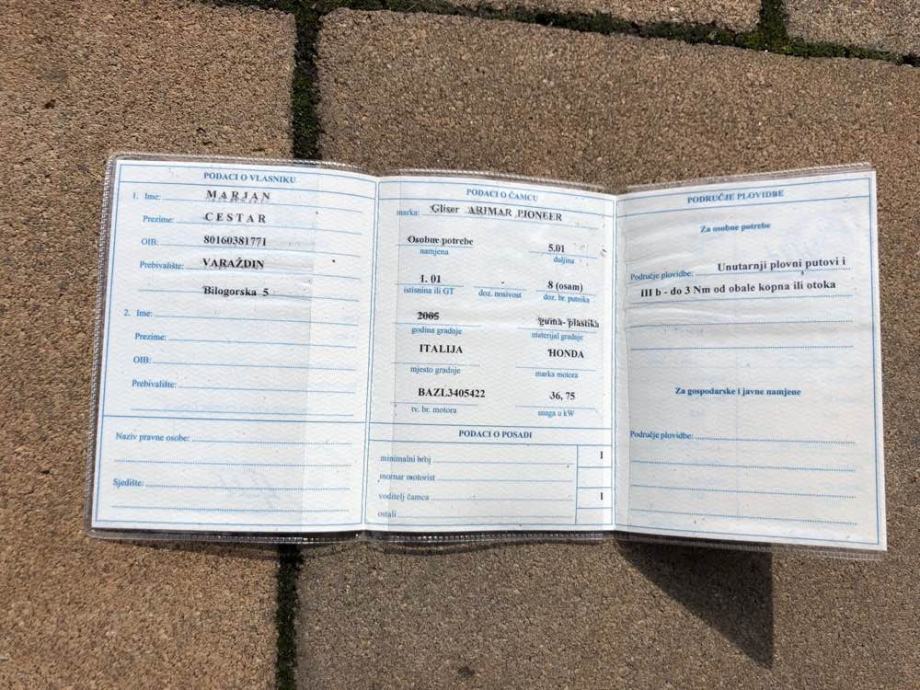 PODACI O VLASNIKU
1. Ime: MARJAN
Prezime: CESTAR
OIB: 80160381771
Prebivalište: VARAŽDIN
Bilogorska 5
2. Ime:
Prezime:
OIB:
Prebivalište:
Naziv pravne osobe:
Sjedište:
PODACI O ČAMCU
marka: Gliser ARIMAR PIONEER
Osobne potrebe 5.01
namjena duljina
1. 01 8 (osam)
istisnina ili GT doz. nosivost doz. br. putnika
2005 guma- plastika
godina gradnje materijal gradnje
ITALIJA HONDA
mjesto gradnje marka motora
BAZL3405422 36, 75
tv. br. motora snaga u kW
PODACI O POSADI
minimalni broj 1
mornar motorist
voditelj čamca 1
ostali
PODRUČJE PLOVIDBE
Za osobne potrebe
Područje plovidbe: Unutarnji plovni putovi i
III b - do 3 Nm od obale kopna ili otoka
Za gospodarske i javne namjene
Područje plovidbe: